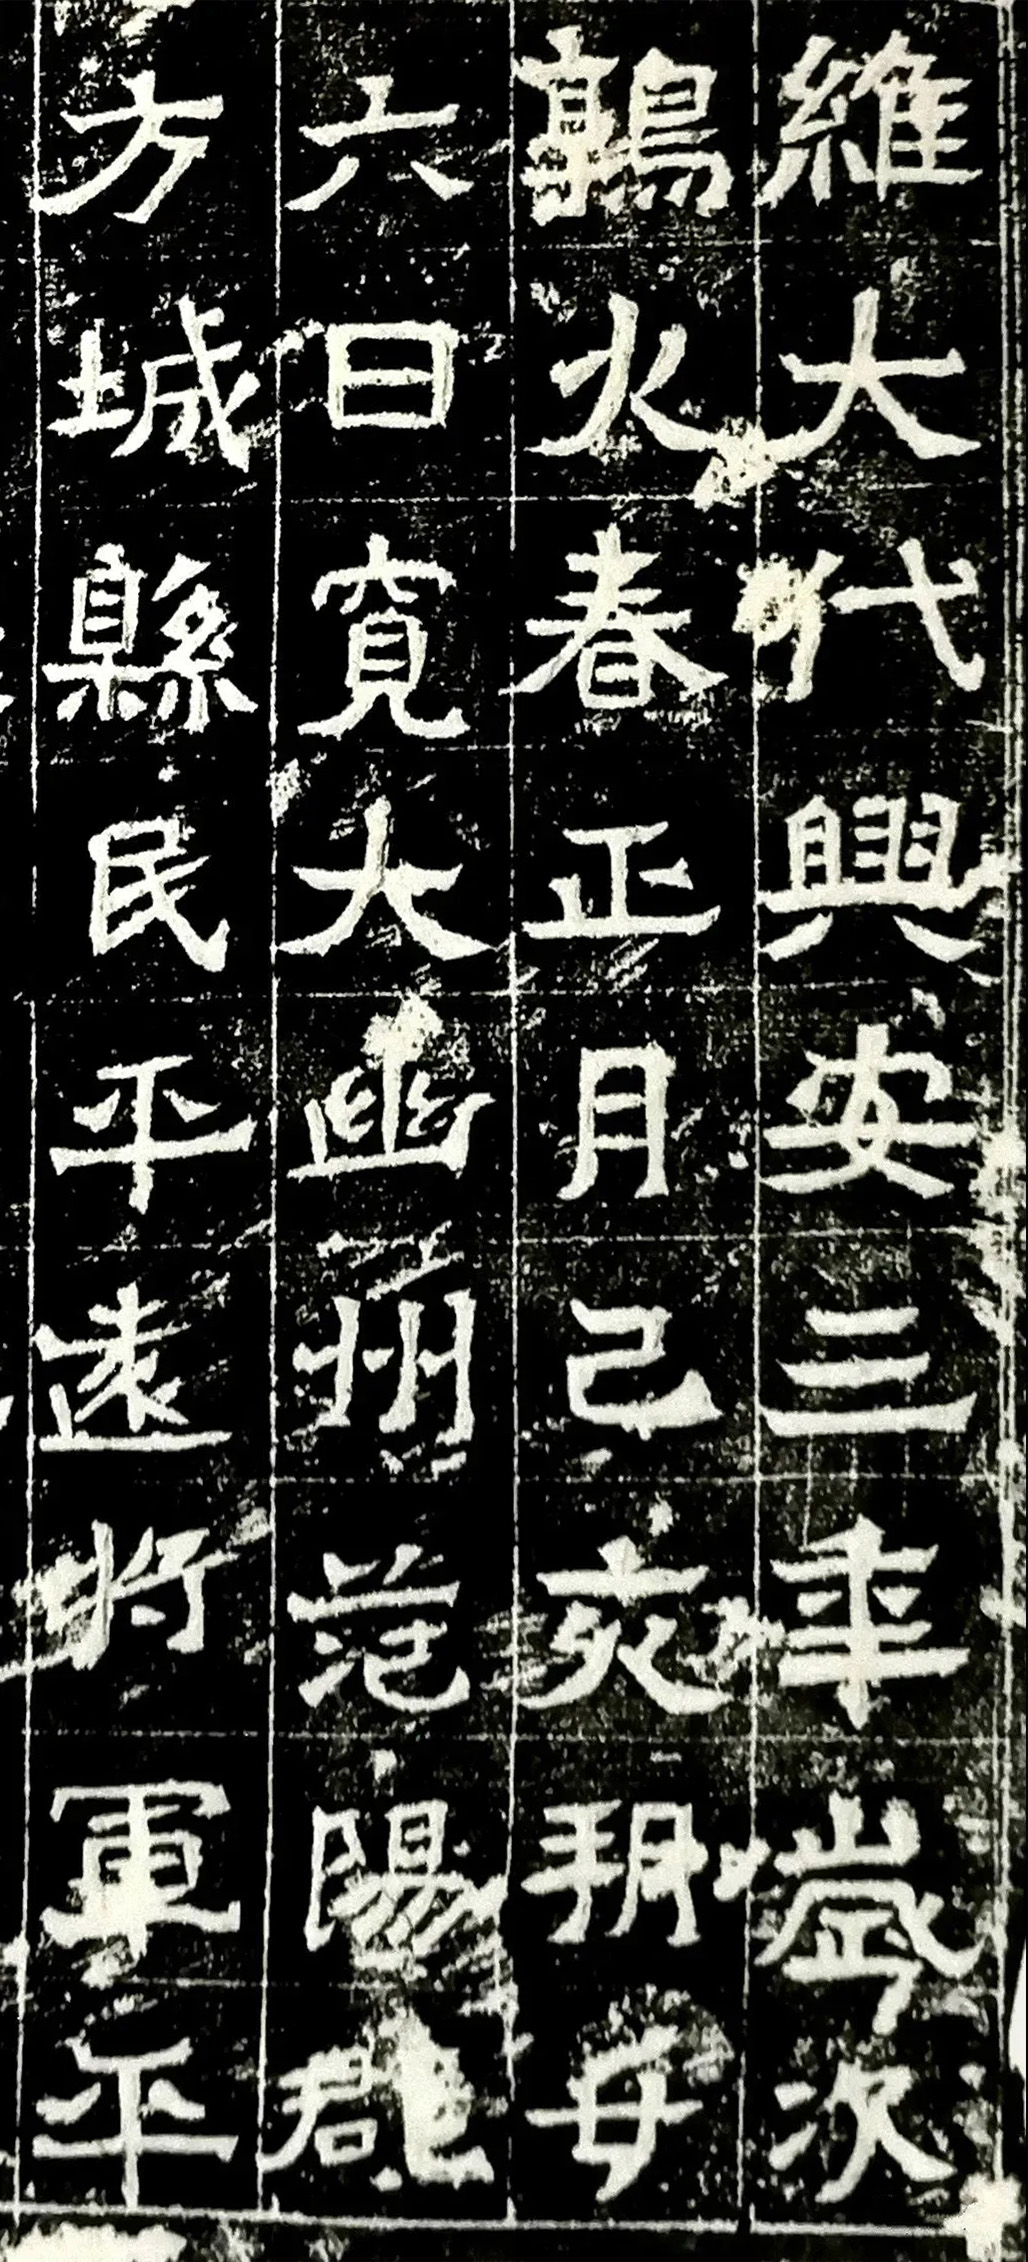 維大代興安三年歲次
鶉火春正月己亥朔廿
六日寬大幽州范陽郡
方城縣民平遠將軍平